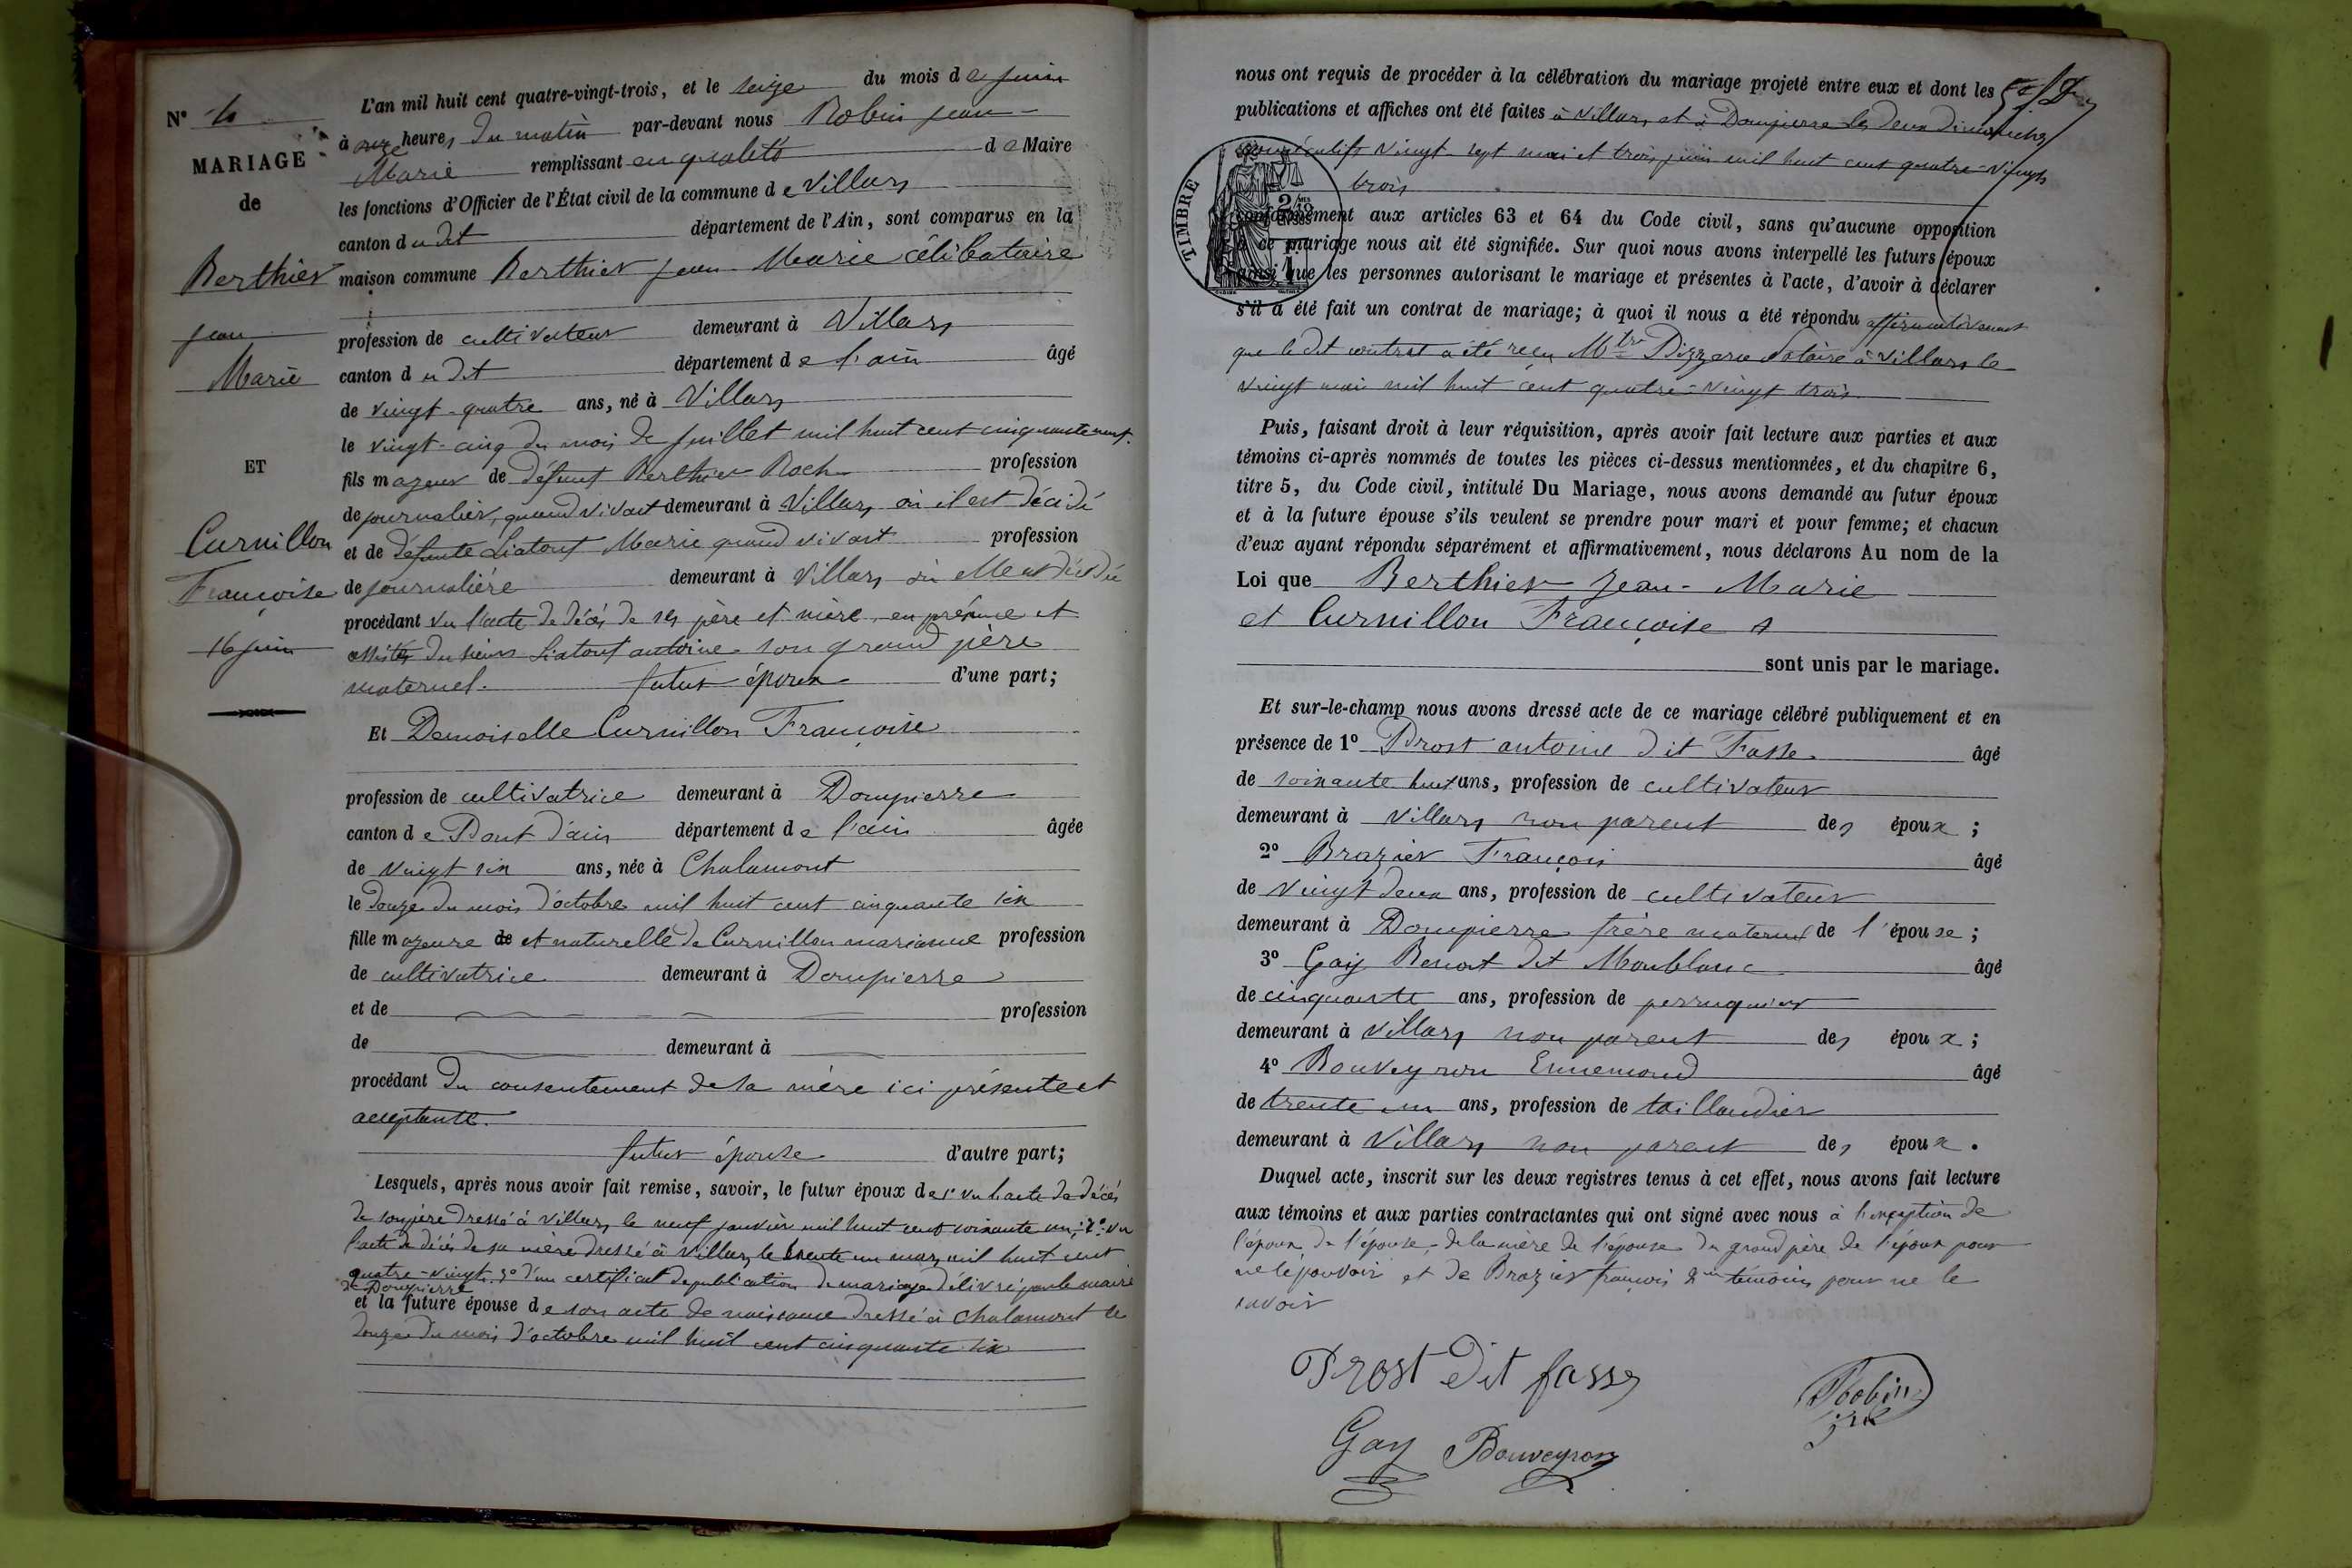 N° 4
MARIAGE
de
Berthier
Jean
Marie
ET
Curnillon
Françoise
16 juin
L'an mil huit cent quatre-vingt-trois, et le seize du mois de juin
à onze heures du matin par-devant nous Robin Jean
Marie remplissant en qualité de Maire
les fonctions d'Officier de l'État civil de la commune de Villars
canton du dit département de l'Ain, sont comparus en la
maison commune Berthier Jean Marie célibataire
profession de cultivateur demeurant à Villars
canton du dit département de l'ain âgé
de vingt-quatre ans, né à Villars
le vingt-cinq du mois de juillet mil huit cent cinquante neuf.
fils majeur de défunt Berthier Roch profession
de journalier, quand vivait demeurant à Villars où il est décédé
et de défunte Liatout Marie quand vivait profession
de journalière demeurant à Villars où elle est décédée
procédant vu l'acte de décès de ses père et mère, en présence et
assisté du sieur Liatout antoine son grand père
maternel. futur époux d'une part;
Et Demoiselle Curnillon Françoise
profession de cultivatrice demeurant à Dompierre
canton de Pont d'ain département de l'ain âgée
de vingt six ans, née à Chalamont
le douze du mois d'octobre mil huit cent cinquante six
fille majeure de et naturelle de Curnillon marianne profession
de cultivatrice demeurant à Dompierre
et de profession
de demeurant à
procédant du consentement de sa mère ici présente et
acceptante.
futur épouse d'autre part;
Lesquels, après nous avoir fait remise, savoir, le futur époux de 1° vu l'acte de décès
de son père dressé à Villars le neuf janvier mil huit cent soixante un; 2° vu
l'acte de décès de sa mère dressé à Villars le trente un mars mil huit cent
quatre-vingt. 3° d'un certificat de publication de mariage délivré par le maire
de Dompierre
et la future épouse de son acte de naissance dressé à Chalamont le
douze du mois d'octobre mil huit cent cinquante six
nous ont requis de procéder à la célébration du mariage projeté entre eux et dont les
publications et affiches ont été faites à Villars et à Dompierre les deux dimanches
consécutifs vingt-sept mai et trois juin mil huit cent quatre-vingts
trois
TIMBRE
conformément aux articles 63 et 64 du Code civil, sans qu'aucune opposition
à ce mariage nous ait été signifiée. Sur quoi nous avons interpellé les futurs époux
ainsi que les personnes autorisant le mariage et présentes à l'acte, d'avoir à déclarer
s'il a été fait un contrat de mariage; à quoi il nous a été répondu affirmativement
que le dit contrat a été reçu Mtre Notaire à Villars le
vingt mai mil huit cent quatre-vingt trois.
Puis, faisant droit à leur réquisition, après avoir fait lecture aux parties et aux
témoins ci-après nommés de toutes les pièces ci-dessus mentionnées, et du chapitre 6,
titre 5, du Code civil, intitulé Du Mariage, nous avons demandé au futur époux
et à la future épouse s'ils veulent se prendre pour mari et pour femme; et chacun
d'eux ayant répondu séparément et affirmativement, nous déclarons Au nom de la
Loi que Berthier Jean-Marie
et Curnillon Françoise
sont unis par le mariage.
Et sur-le-champ nous avons dressé acte de ce mariage célébré publiquement et en
présence de 1° Prost antoine dit Fasse âgé
de soixante huit ans, profession de cultivateur
demeurant à Villars non parent des époux;
2° Brazier François âgé
de vingt deux ans, profession de cultivateur
demeurant à Dompierre frère maternel de l'épouse;
3° Gay Benoit dit Monblanc âgé
de cinquante ans, profession de perruquier
demeurant à Villars non parent des époux;
4° Bouveyron Ennemond âgé
de trente un ans, profession de taillandier
demeurant à Villars non parent des époux.
Duquel acte, inscrit sur les deux registres tenus à cet effet, nous avons fait lecture
aux témoins et aux parties contractantes qui ont signé avec nous à l'exception de
l'époux, de l'épouse, de la mère de l'épouse du grand père de l'époux pour
ne le pouvoir et de Brazier françois 2me témoin pour ne le
savoir
Prost dit fasse
Robin
Gay Bouveyron